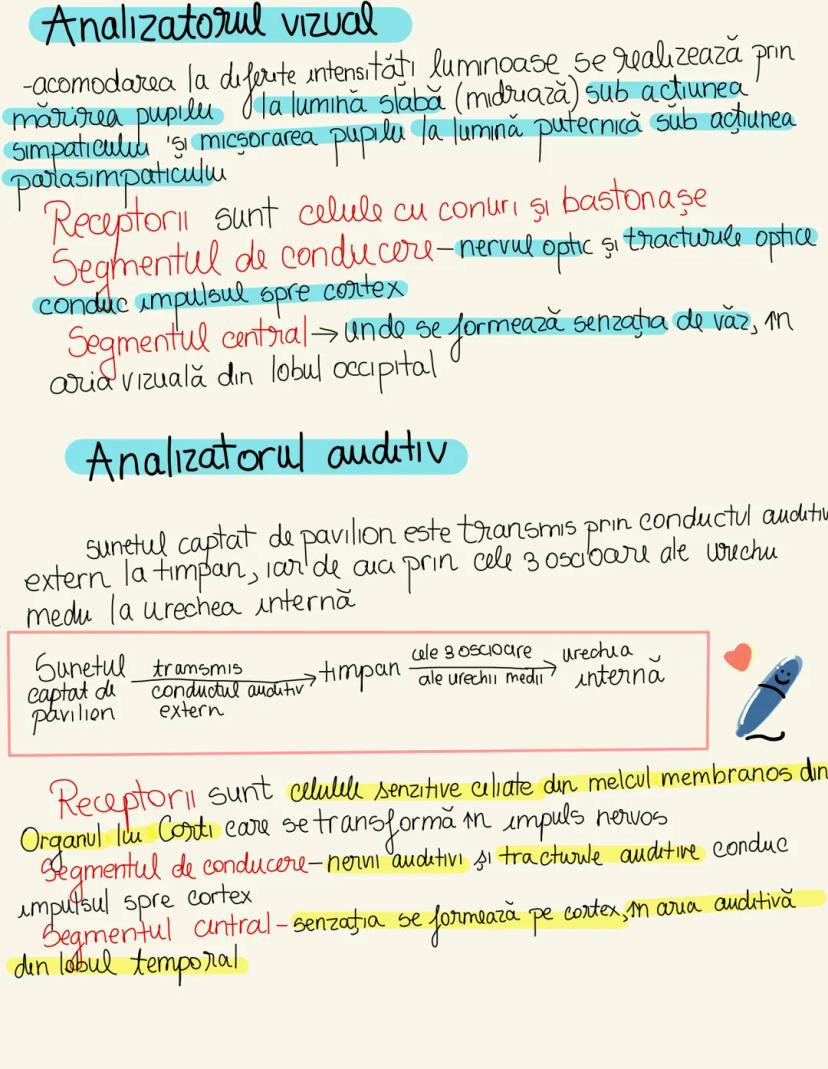 Analizatorul vizual
-acomodarea la diferite intensități luminoase se realizează prin
mărirea pupilei la lumină slabă (midriază) sub acțiunea
simpaticului și micșorarea pupilei la lumină puternică sub acțiunea
parasimpaticului
Receptorii sunt celule cu conuri și bastonașe
Segmentul de conducere-nervul optic și tracturile optice
conduc impulsul spre cortex
Segmentul central→unde se formează senzația de văz, în
aria vizuală din lobul occipital
Analizatorul auditiv
sunetul captat de pavilion este transmis prin conductul auditiv
extern la timpan, iar de aici prin cele 3 oscioare ale urechii
medii la urechea internă
Sunetul captat de pavilion transmis conductul auditiv extern → timpan cele 3 oscioare ale urechii medii → urechea internă
Receptorii sunt celulele senzitive ciliate din melcul membranos din
Organul lui Corti care se transformă în impuls nervos
Segmentul de conducere-nervii auditivi și tracturile auditive conduc
impulsul spre cortex
Segmentul central-senzația se formează pe cortex, în aria auditivă
din lobul temporal